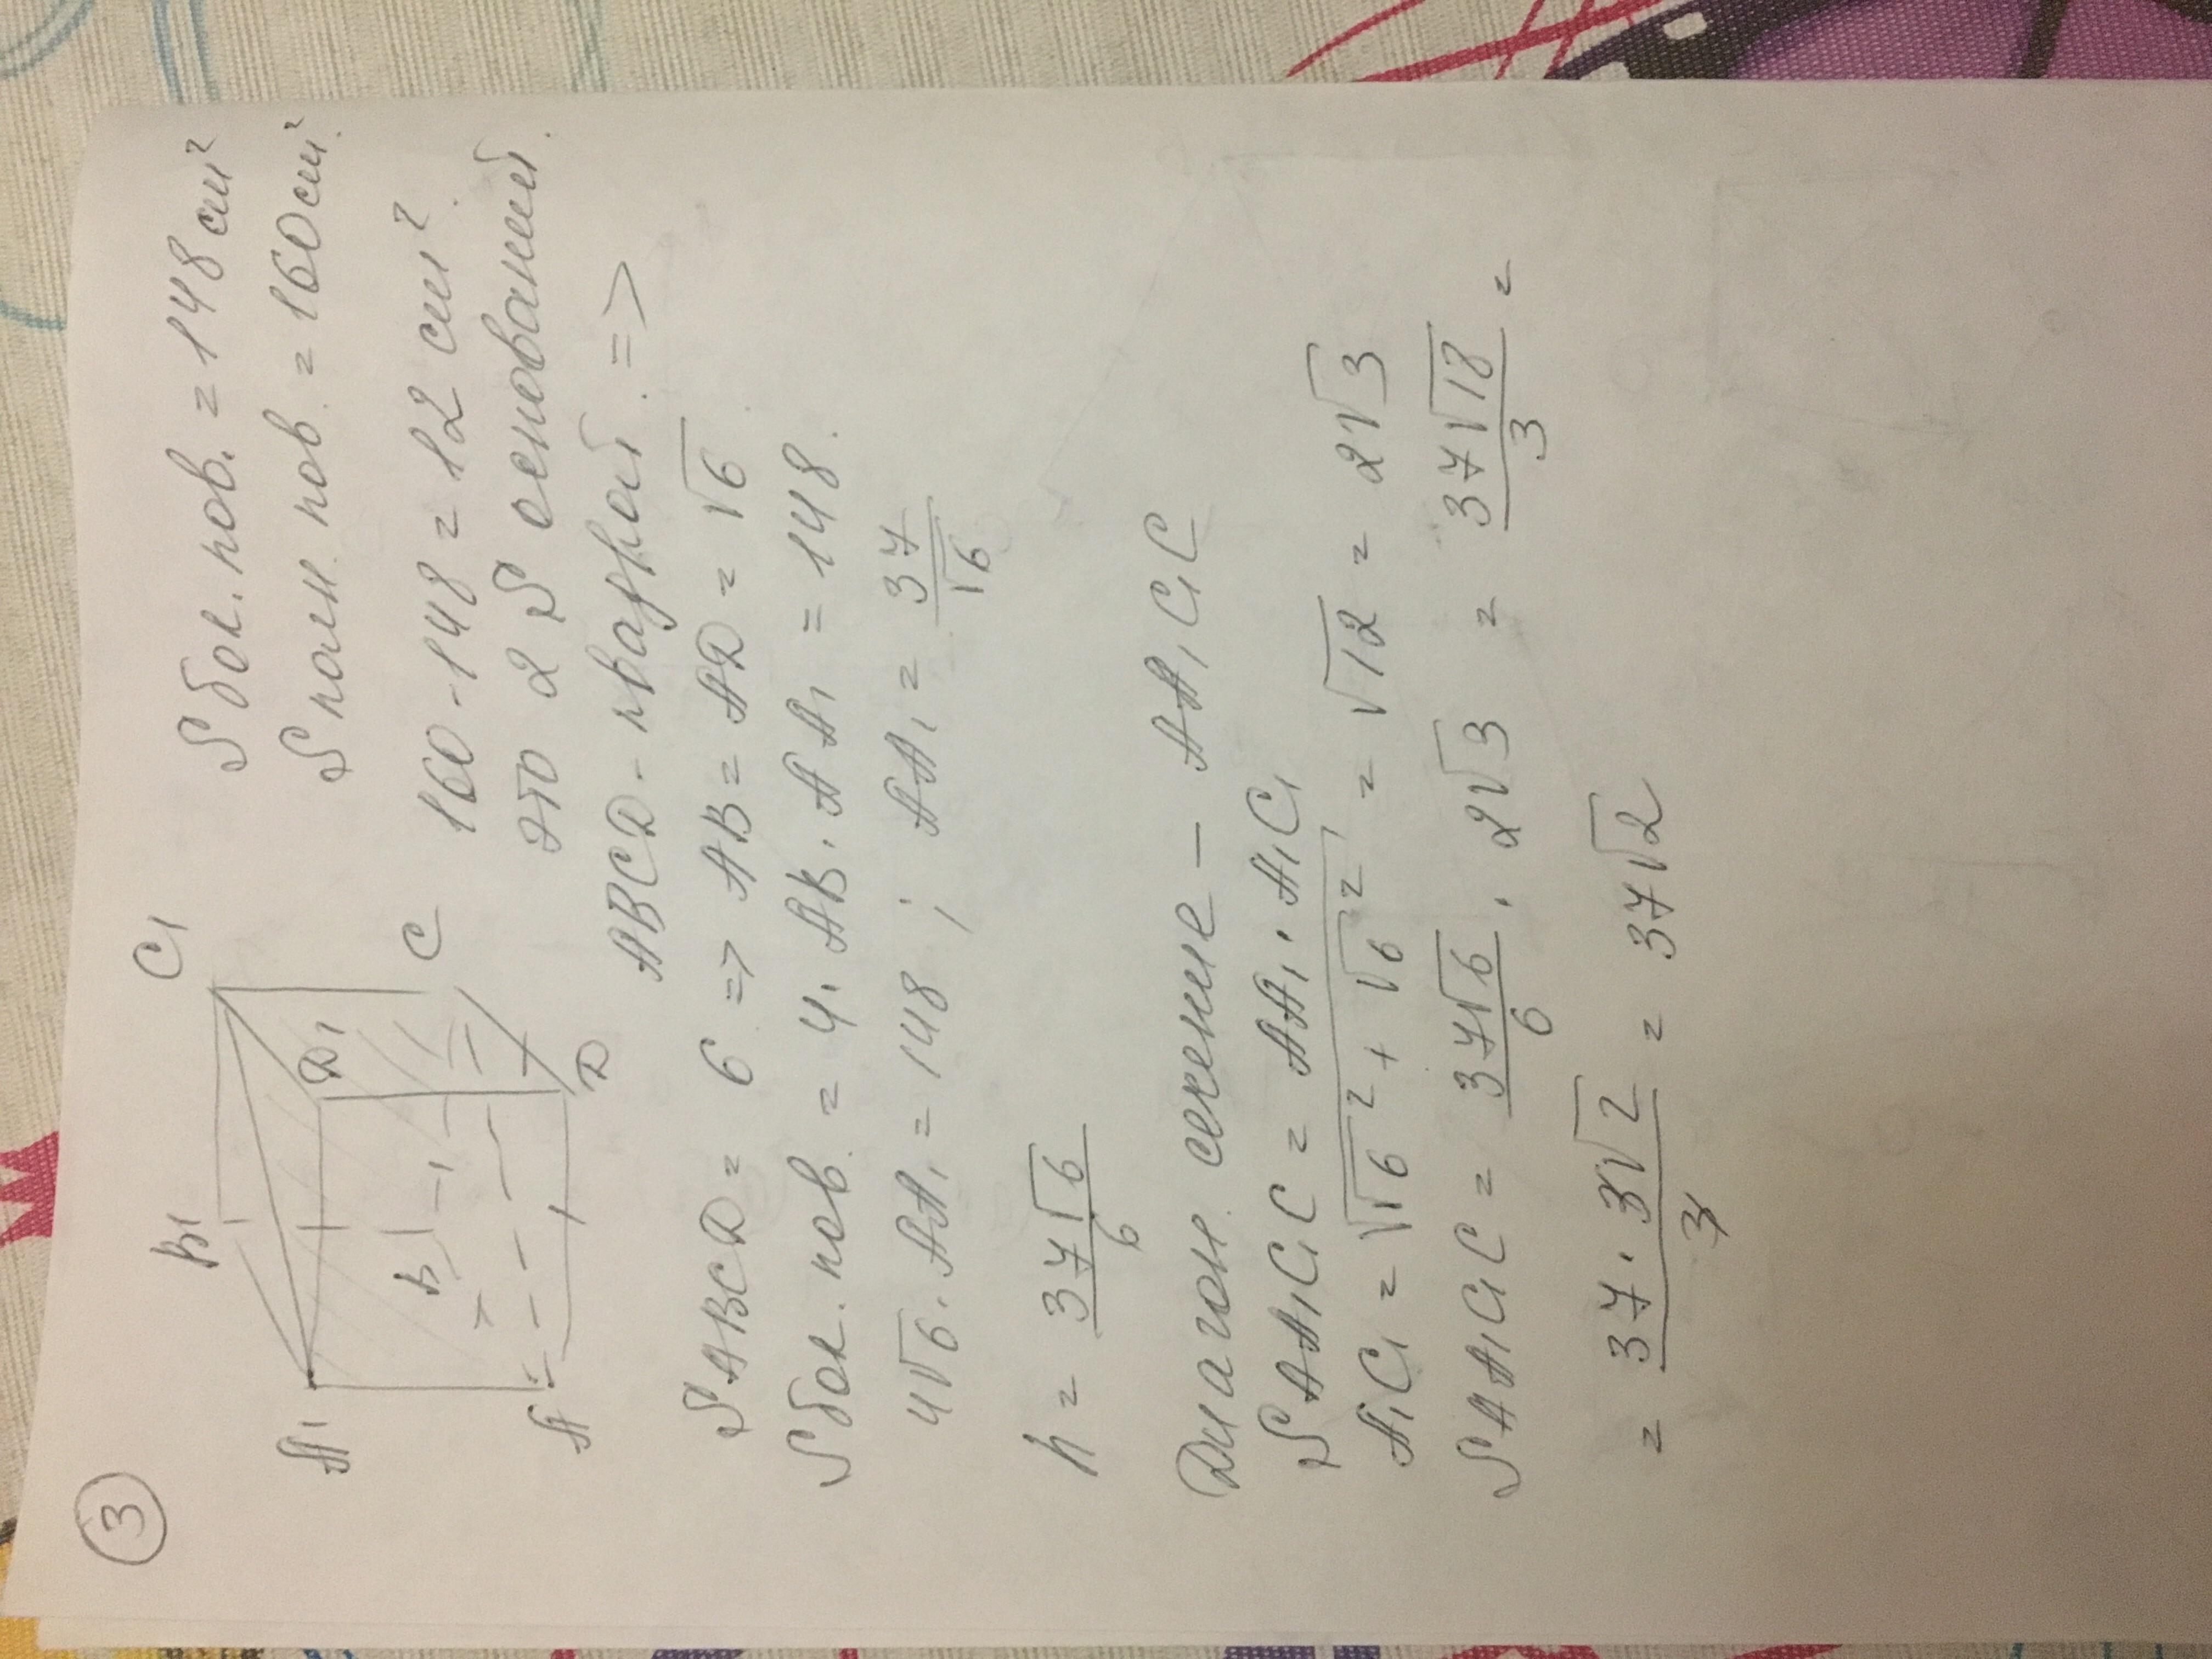 3
B1
C1
A1
D1
B
C
A
D
S бок. пов. = 148 см²
S полн. пов. = 160 см².
160 - 148 = 12 см².
это 2 S оснований.
ABCD - квадрат. =>
S ABCD = 6 => AB = AD = √6
S бок. пов. = 4 · AB · AA₁ = 148.
4√6 · AA₁ = 148 ; AA₁ = 37/√6
h = 37√6/6
Диагон. сечение – AA₁C₁C
S AA₁C₁C = AA₁ · A₁C₁
A₁C₁ = √(√6² + √6²) = √12 = 2√3
S AA₁C₁C = 37√6/6 · 2√3 = 37√18/3 =
= 37 · 3√2/3 = 37√2